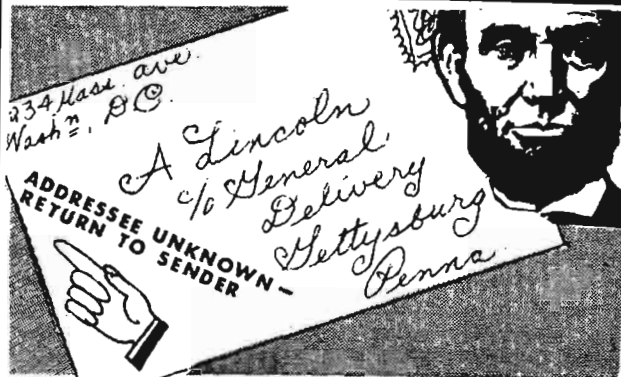 234 Mass. ave.
Wash<sup>n</sup>., DC.
A Lincoln
c/o General
Delivery
Gettysburg
Penna
ADDRESSEE UNKNOWN—
RETURN TO SENDER